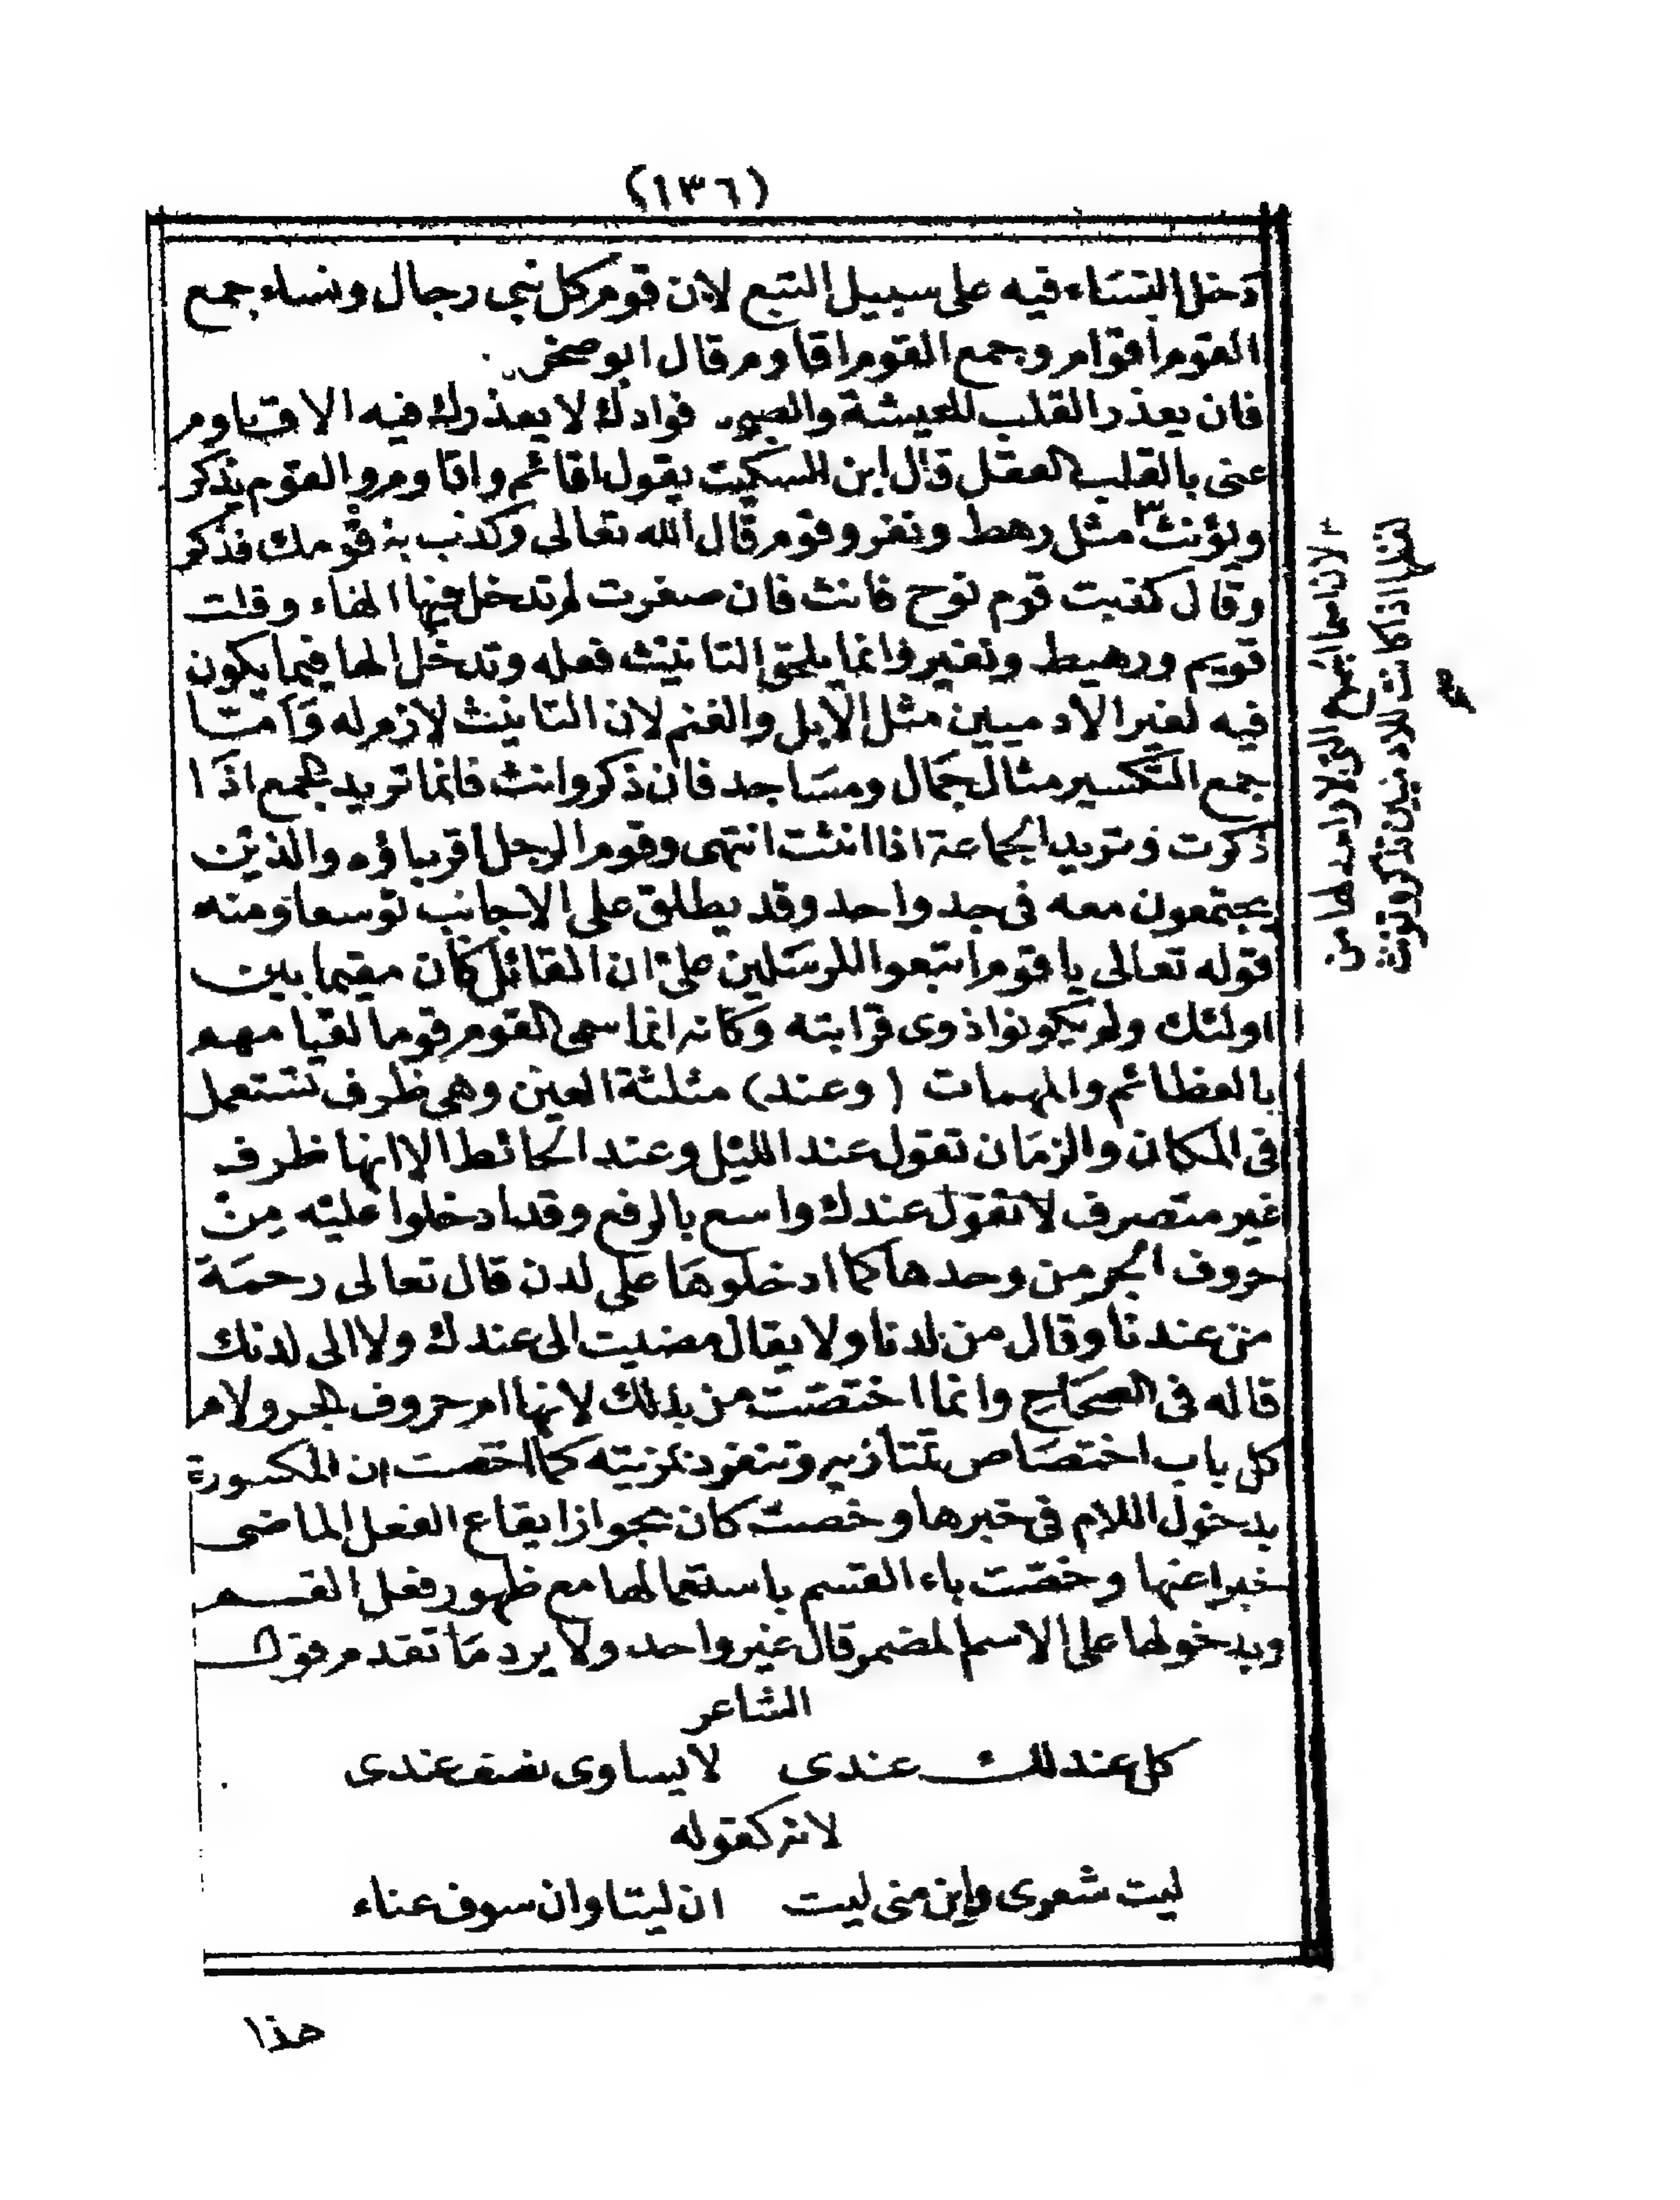 (١٣٦)
دخل النساء فيه على سبيل التبع لان قوم كل نبي رجال ونساء جمع
القوم اقوام وجمع القوم اقاوم قال ابو صخر
فان يعذر القلب العيشة والصبى فوادك لا يعذرك فيه الاقاوم
عنى بالقلب العقل قال ابن السكيت يقول اقائم واقاوم والقوم يذكر
ويؤنث ٣ مثل رهط ونفر وقوم قال الله تعالى وكذب به قومك فذكر
وقال كذبت قوم نوح فانث فان صغرت لم تدخل فيها الهاء وقلت
قويم ورهيط ونفير وانما يلحق التانيث فعله وتدخل الها فيما يكون
فيه لغير الآدميين مثل الابل والغنم لان التانيث لازم له وأمتا
جمع التكسير مثال جمال ومساجد فان ذكر وانث فانما تريد الجمع اذا
ذكرت وتريد الجماعة اذا انثت انتهى وقوم الرجل اقرباؤه والذين
يجتمعون معه فى جد واحد وقد يطلق على الاجانب توسعا ومنه
قوله تعالى يا قوم اتبعوا المرسلين على ان القائل كان مقيما بين
اولئك ولم يكونوا ذوى قرابته وكانه انما سمى القوم قوما لقيامهم
بالعظائم والمهمات (وعند) مثلثة العين وهى ظرف تستعمل
فى المكان والزمان تقول عند الليل وعند الحائط الا انها ظرف
غير متصرف لا تقول عندك واسع بالرفع وقد ادخلوا عليه من
حروف الجر من وحدها كما ادخلوها على لدن قال تعالى رحمة
من عندنا وقال من لدنا ولا يقال مضيت الى عندك ولا الى لدنك
قاله فى الصحاح وانما اختصت من بذلك لانها ام حروف الجر ولام
كل باب اختصاص تمتاز به وتنفرد بمزيته كما اختصت ان المكسورة
بدخول اللام فى خبرها وخصت كان بجواز ايقاع الفعل الماضى
خبرا عنها وخصت باء القسم باستعمالها مع ظهور فعل القسم
وبدخولها على الاسم المضمر قال غير واحد ولا يرد ما تقدم قول
الشاعر
كل عند لك عندى لا يساوى نصف عندى
لانه كقوله
ليت شعرى واين منى ليت ان ليتا وان سوف عناء
هذا
٣ لان اسما الجموع التى لا واحد لها من
لفظها اذا كانت للآدميين تذكر وتونث
صح